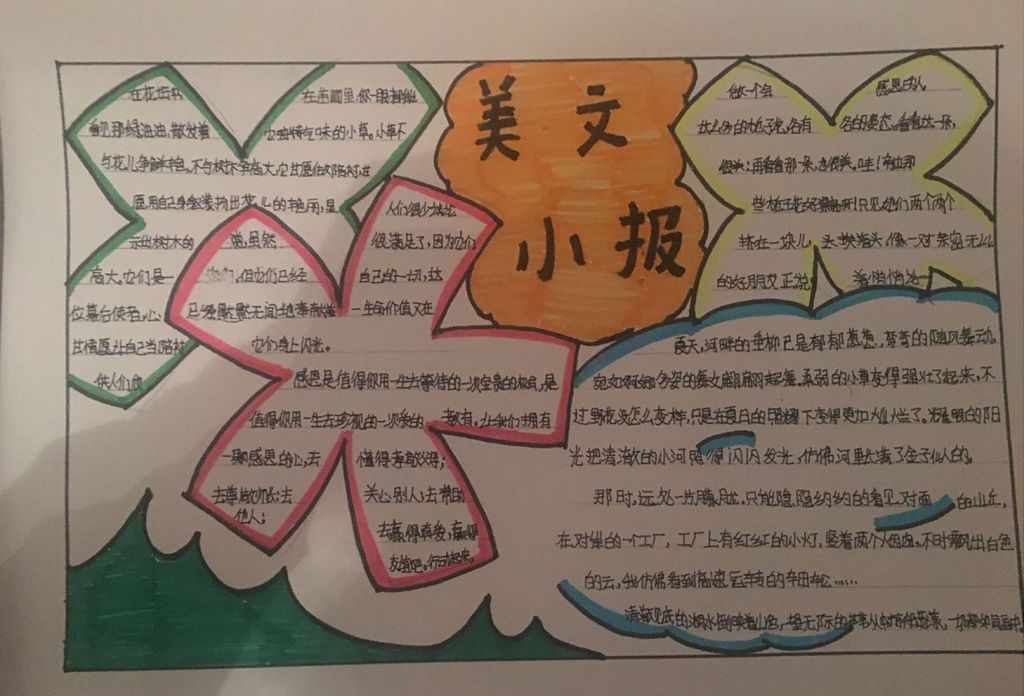 美文
小报
在花坛中
看见那绿油油,散发着
在画里你一眼都能
它独特气味的小草。小草不
与花儿争鲜丰艳,不与树木争高大,它甘愿做陪衬,甘
愿用自己身
出花儿的艳丽,显
示出树木的
高大。它们是一
位幕后使者,心
甘情愿让自己当陪衬
供人们
虽然
但它们已经
已经是默默无闻地奉献着
它们身上闪光。
人们很少
很满足了,因为它们
自己的一切,这
一生命价值又在
感恩是值得你用一生去等待的一次宝贵的机会,是
值得你用一生去珍视的一次爱的
教育,让我们拥有
一颗感恩的心,去
懂得孝敬父母;
去尊敬师长;去
关心别人;去帮助
他人;
去赢得真爱,赢得
友情吧。行动起来,
做一个会
感恩的人
这么多的栀子花,各有
各的姿态。看看这一朵,
很美;再看看那一朵,也很美。哇!旁边那
些栀子花好漂亮呀!只见她们两个两个
挨在一块儿,头挨着头,像一对亲密无比
的好朋友正说
着悄悄话
夏天,河畔的垂柳已是郁郁葱葱,弯弯的随风舞动,
宛如婀娜多姿的舞女翩翩起舞。柔弱的小草变得强壮了起来,不
过野花没怎么变样,只是在夏日的照耀下变得更加灿烂了。耀眼的阳
光把清澈的小河照得闪闪发光,仿佛河里装满了金子似的。
那时,远处一片朦胧,只能隐隐约约的看见对面的山丘,
在对岸的一个工厂,工厂上有红红的小灯,竖着两个大烟囱,不时飘出白色
的云,我仿佛看到高速运转的车田车仑……
清澈见底的湖水倒映着山色,一望无际的芦苇